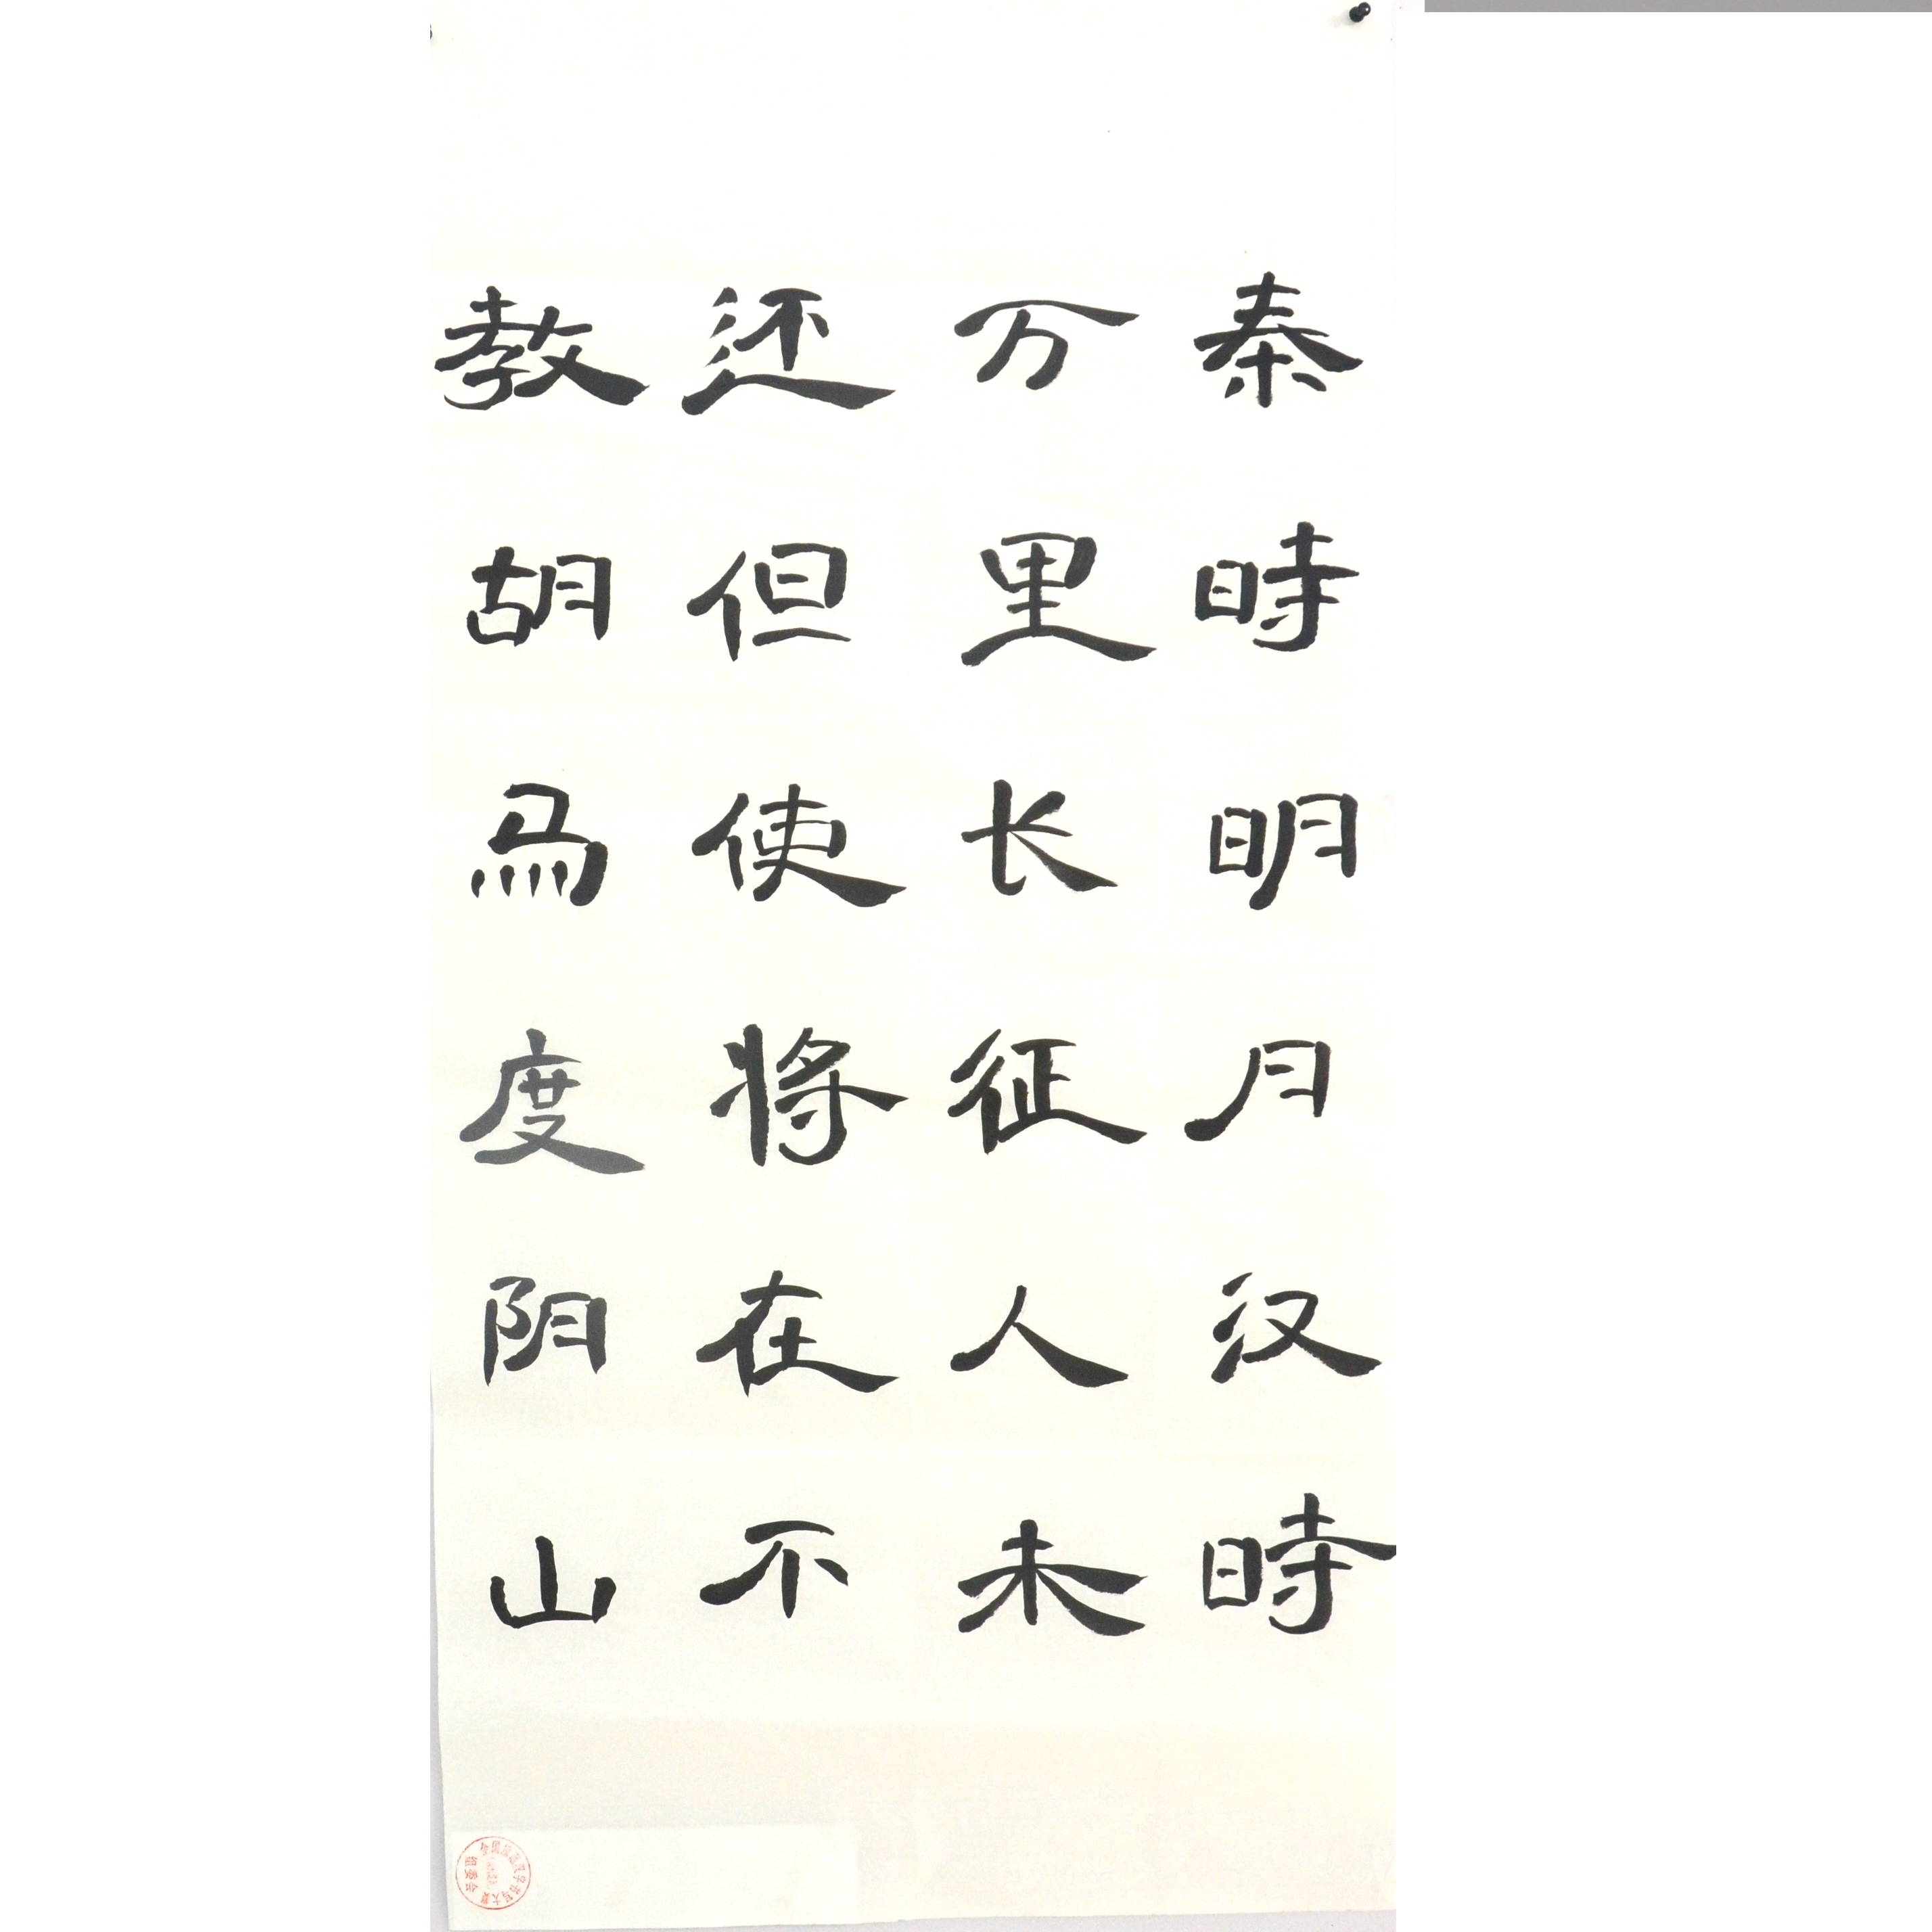 秦時明月汉時
万里长征人未
还但使将在不
教胡馬度阴山